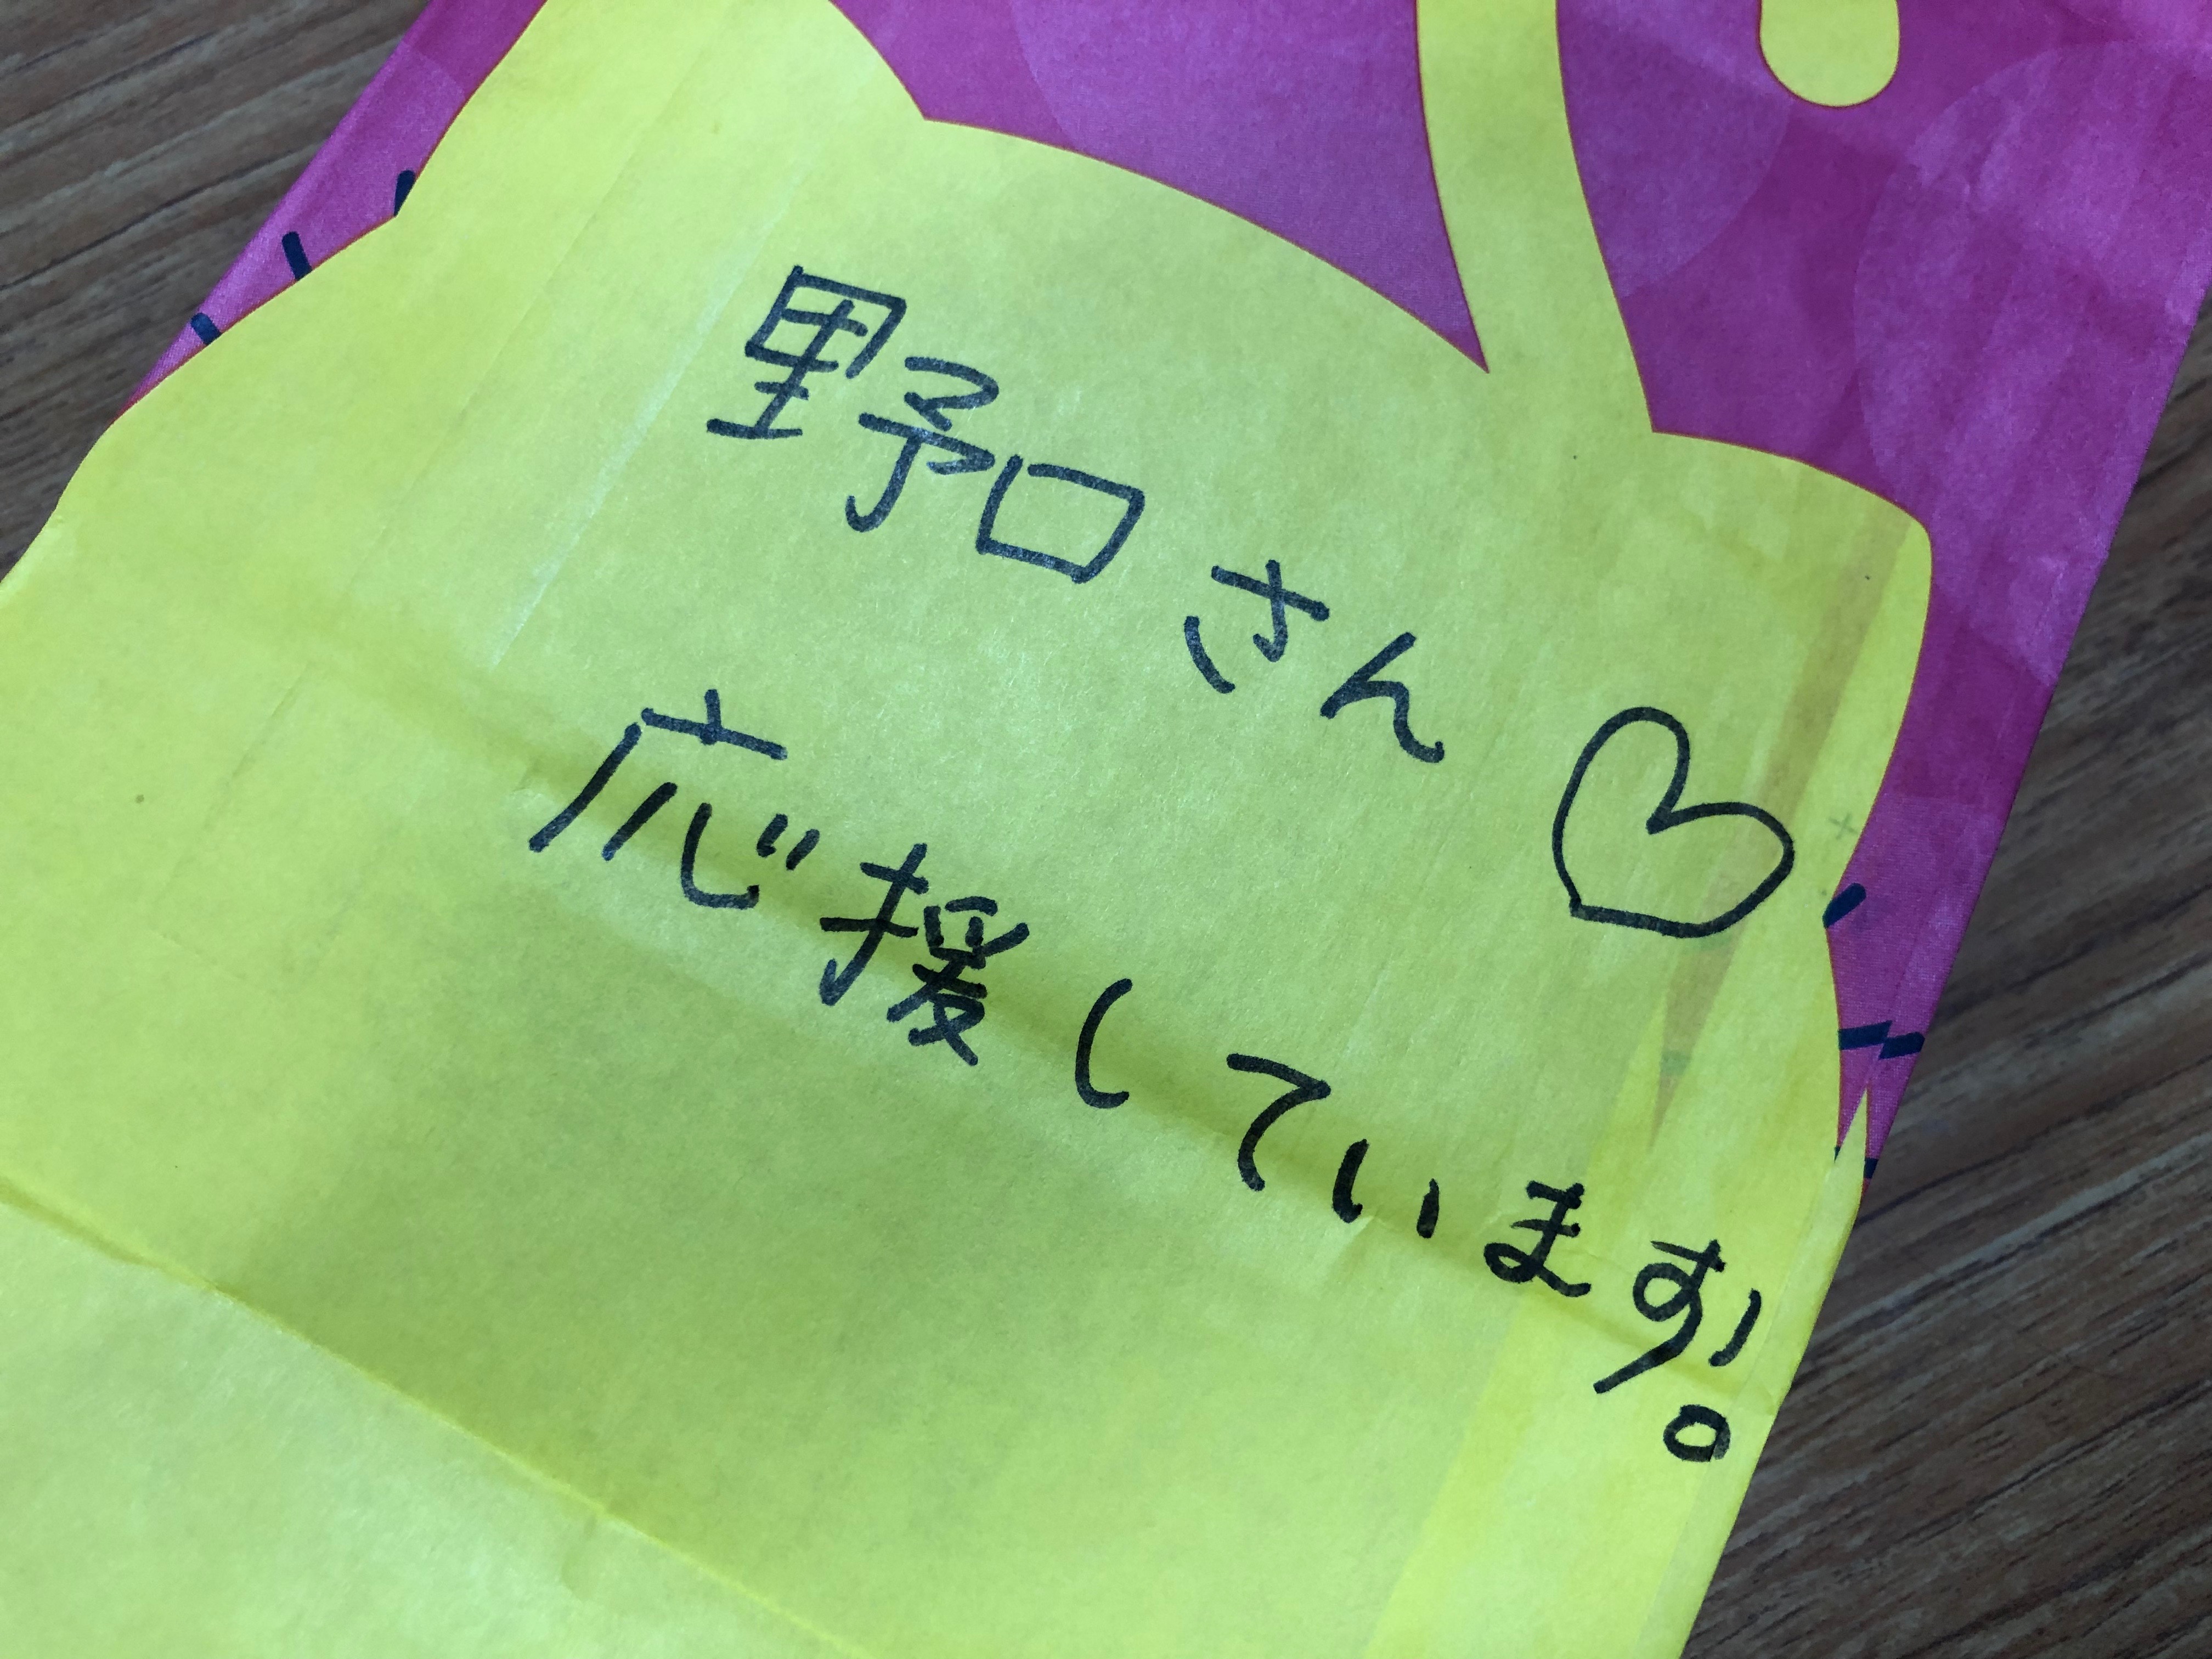 野口さん♡
応援しています!。